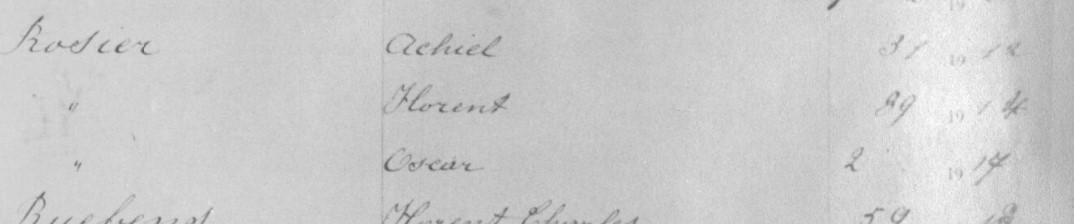 Rosier Achiel 31 19 12
" Florent 89 19 14
" Oscar 2 19 17
Florent Charles 59